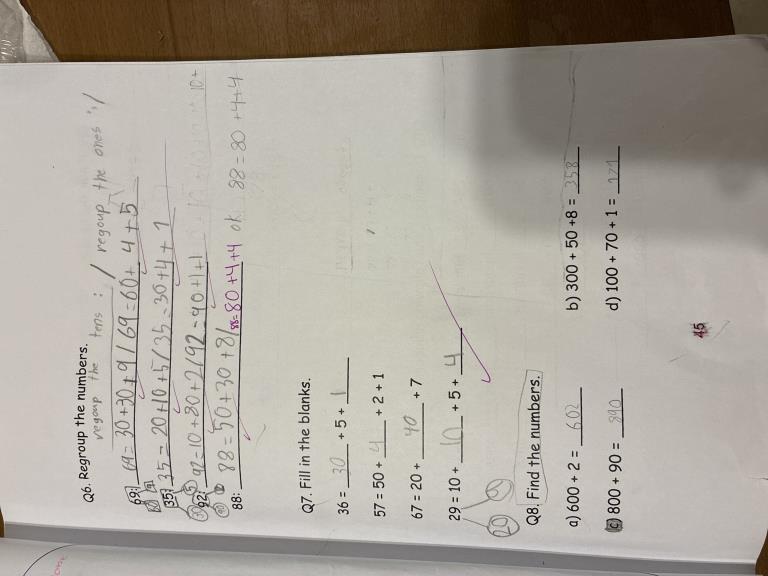 Q6. Regroup the numbers.
regoup the tens : / regoup the ones :/
69: 69=30+30+9/69=60+ 4+5
35: 35=20+10+5/35=30+4+1
92: 92=10+80+2/92=90+1+1
88=50+30+8/
88: 88=80+4+4 ok 88=80+4+4
Q7. Fill in the blanks.
36 = 30 + 5 + 1
57 = 50 + 4 + 2 + 1
67 = 20 + 40 + 7
29 = 10 + 10 + 5 + 4
20 9
Q8. Find the numbers.
a) 600 + 2 = 602 b) 300 + 50 +8 = 358
c) 800 + 90 = 890 d) 100 + 70 + 1 = 171
45